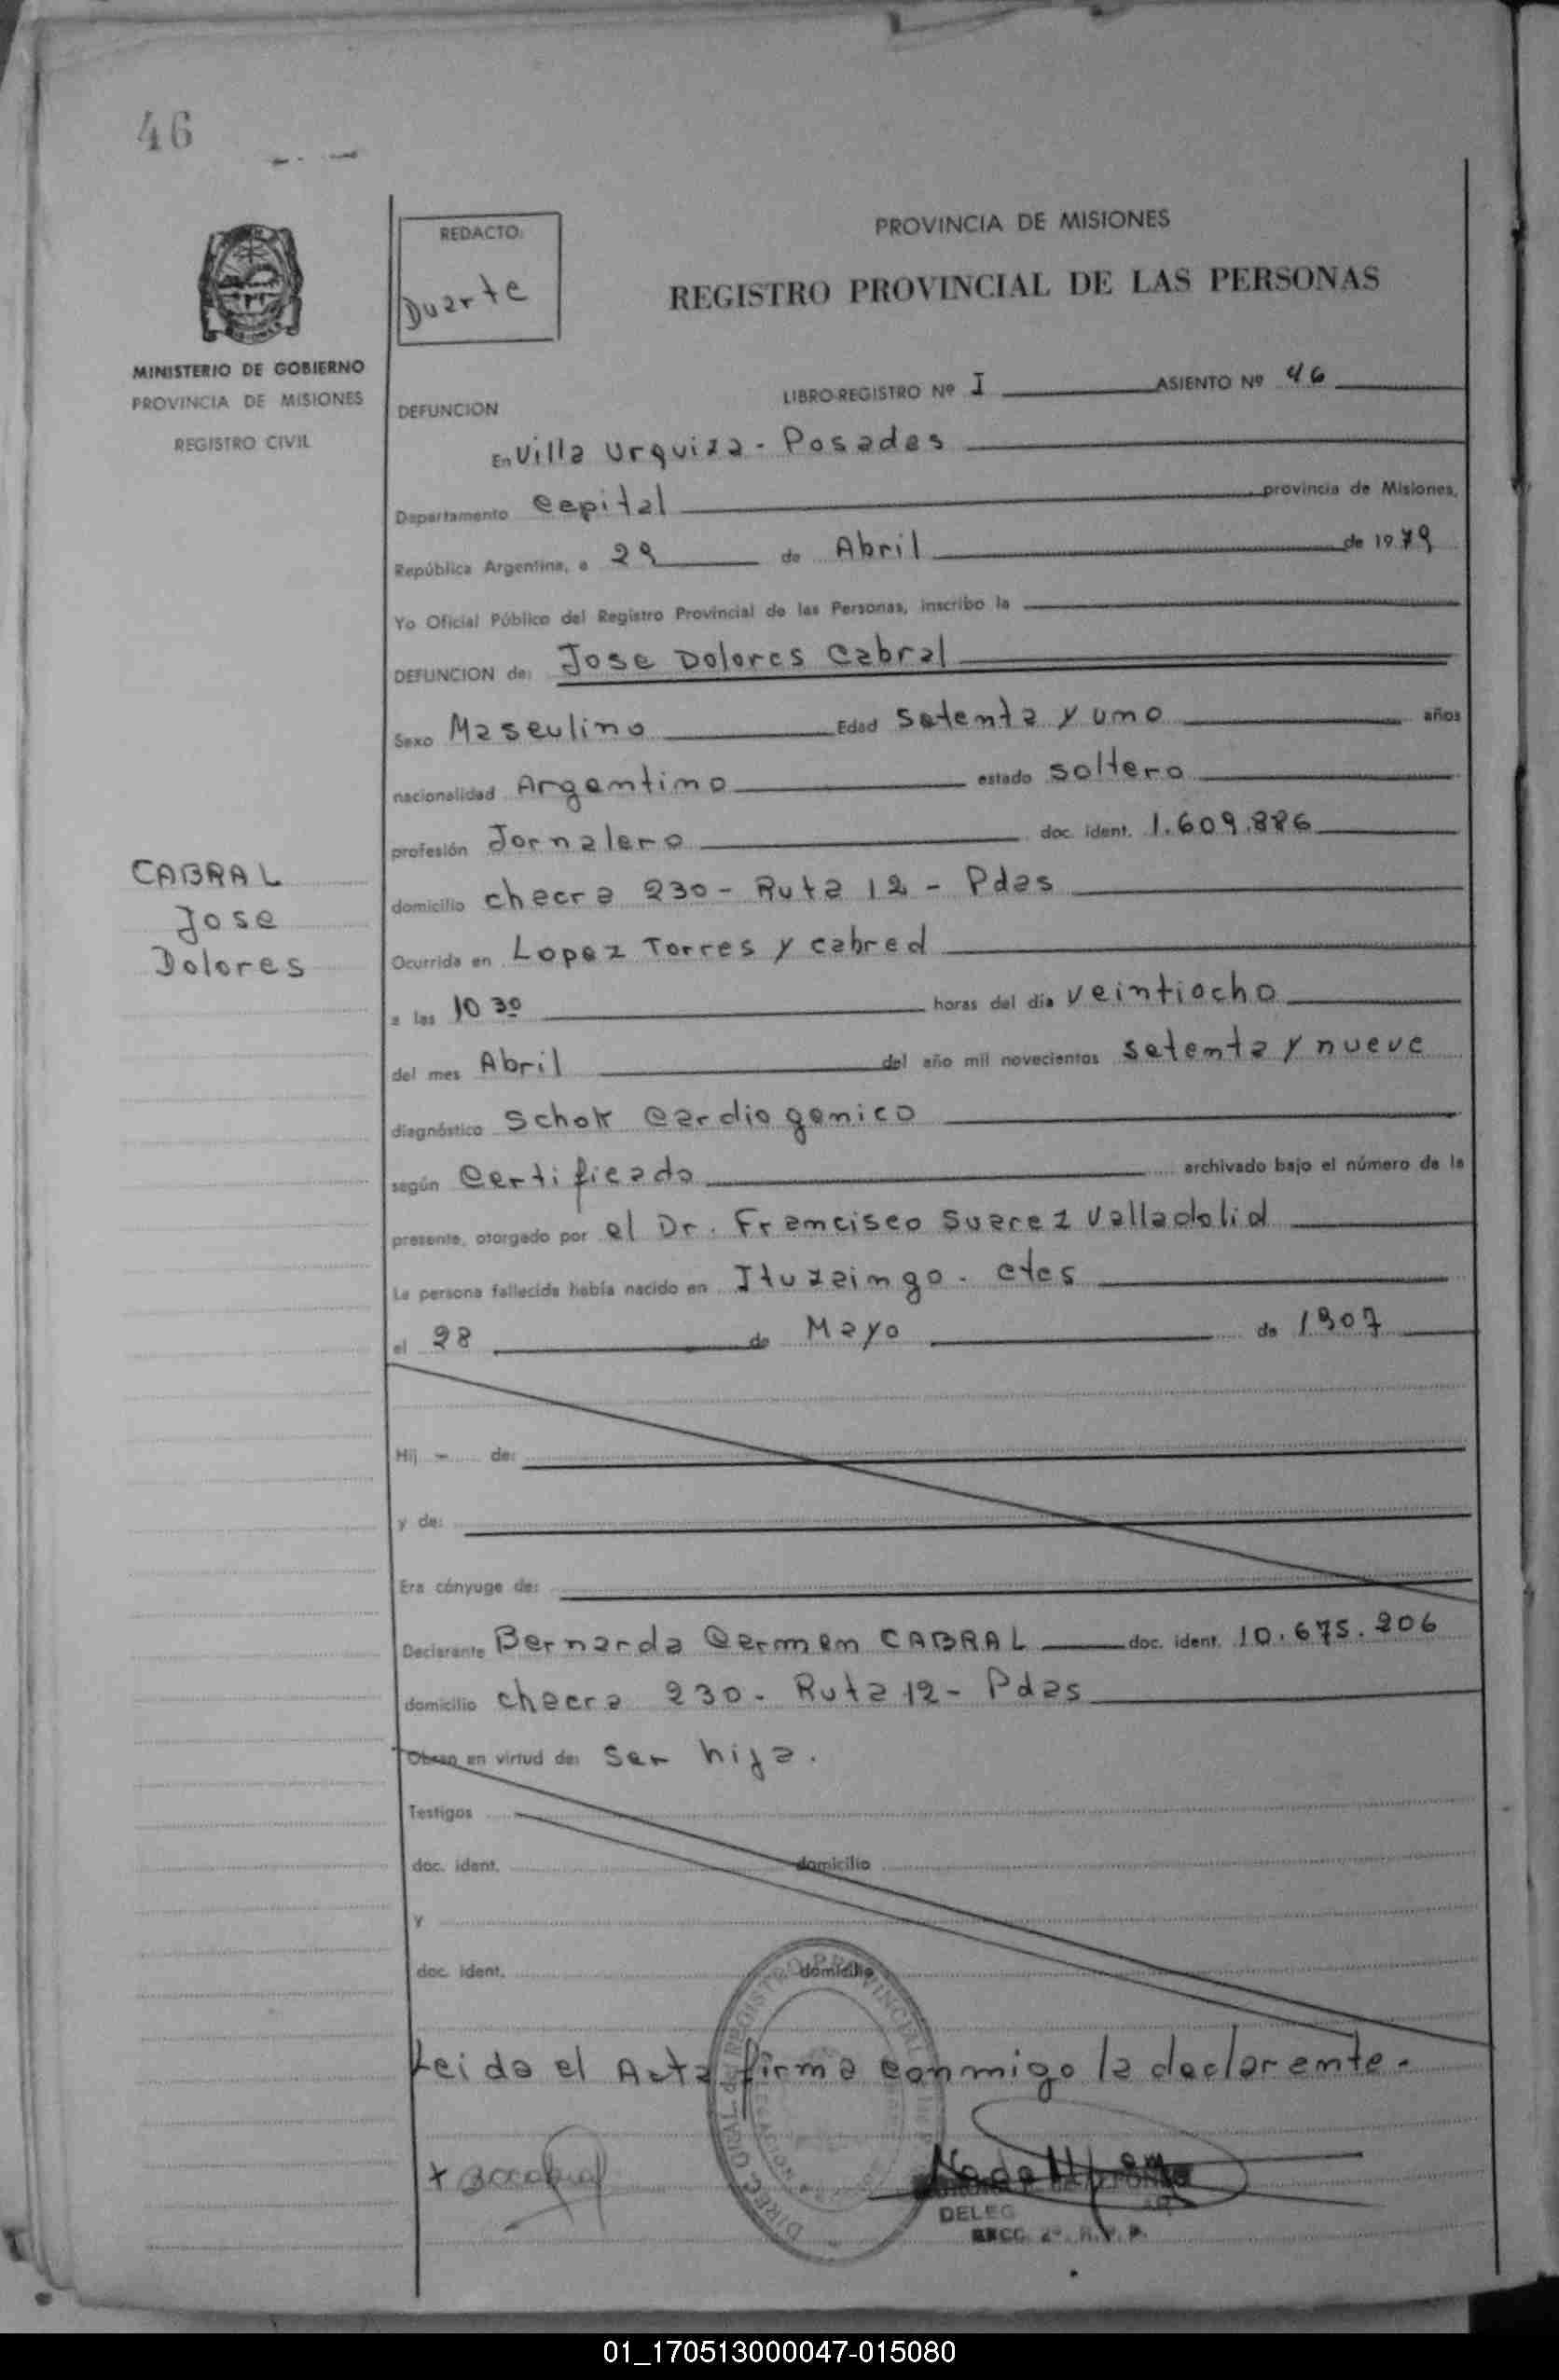 46
REDACTO:
Duarte
PROVINCIA DE MISIONES
REGISTRO PROVINCIAL DE LAS PERSONAS
MINISTERIO DE GOBIERNO
PROVINCIA DE MISIONES
REGISTRO CIVIL
LIBRO-REGISTRO Nº I ASIENTO Nº 46
DEFUNCION
En Villa Urquiza - Posadas
Departamento Capital provincia de Misiones,
República Argentina, a 29 de Abril de 1979
Yo Oficial Público del Registro Provincial de las Personas, inscribo la
DEFUNCION de: Jose Dolores Cabral
Sexo Masculino Edad setenta y uno años
nacionalidad Argentino estado soltero
profesión Jornalero doc. ident. 1.609.886
CABRAL
Jose
Dolores
domicilio chacra 230 - Ruta 12 - Pdas
Ocurrida en Lopez Torres y cabred
a las 10 30 horas del día veintiocho
del mes Abril del año mil novecientos setenta y nueve
diagnóstico Schok Cardiogenico
según Certificado archivado bajo el número de la
presente, otorgado por el Dr. Francisco Suarez Valladolid
La persona fallecida había nacido en Ituzaingo - ctes
el 28 de Mayo de 1907
Hij - de:
y de:
Era cónyuge de:
Declarante Bernarda Carmen CABRAL doc. ident. 10.675.206
domicilio chacra 230 - Ruta 12 - Pdas
Obran en virtud de: Ser hija.
Testigos
doc. ident. domicilio
y
doc. ident. domicilio
Leida el Acta firma conmigo la declarante.
DIREC. GRAL. del REGISTRO PROVINCIAL
DELEG
SECC. 2ª. R.P.P.
01_170513000047-015080